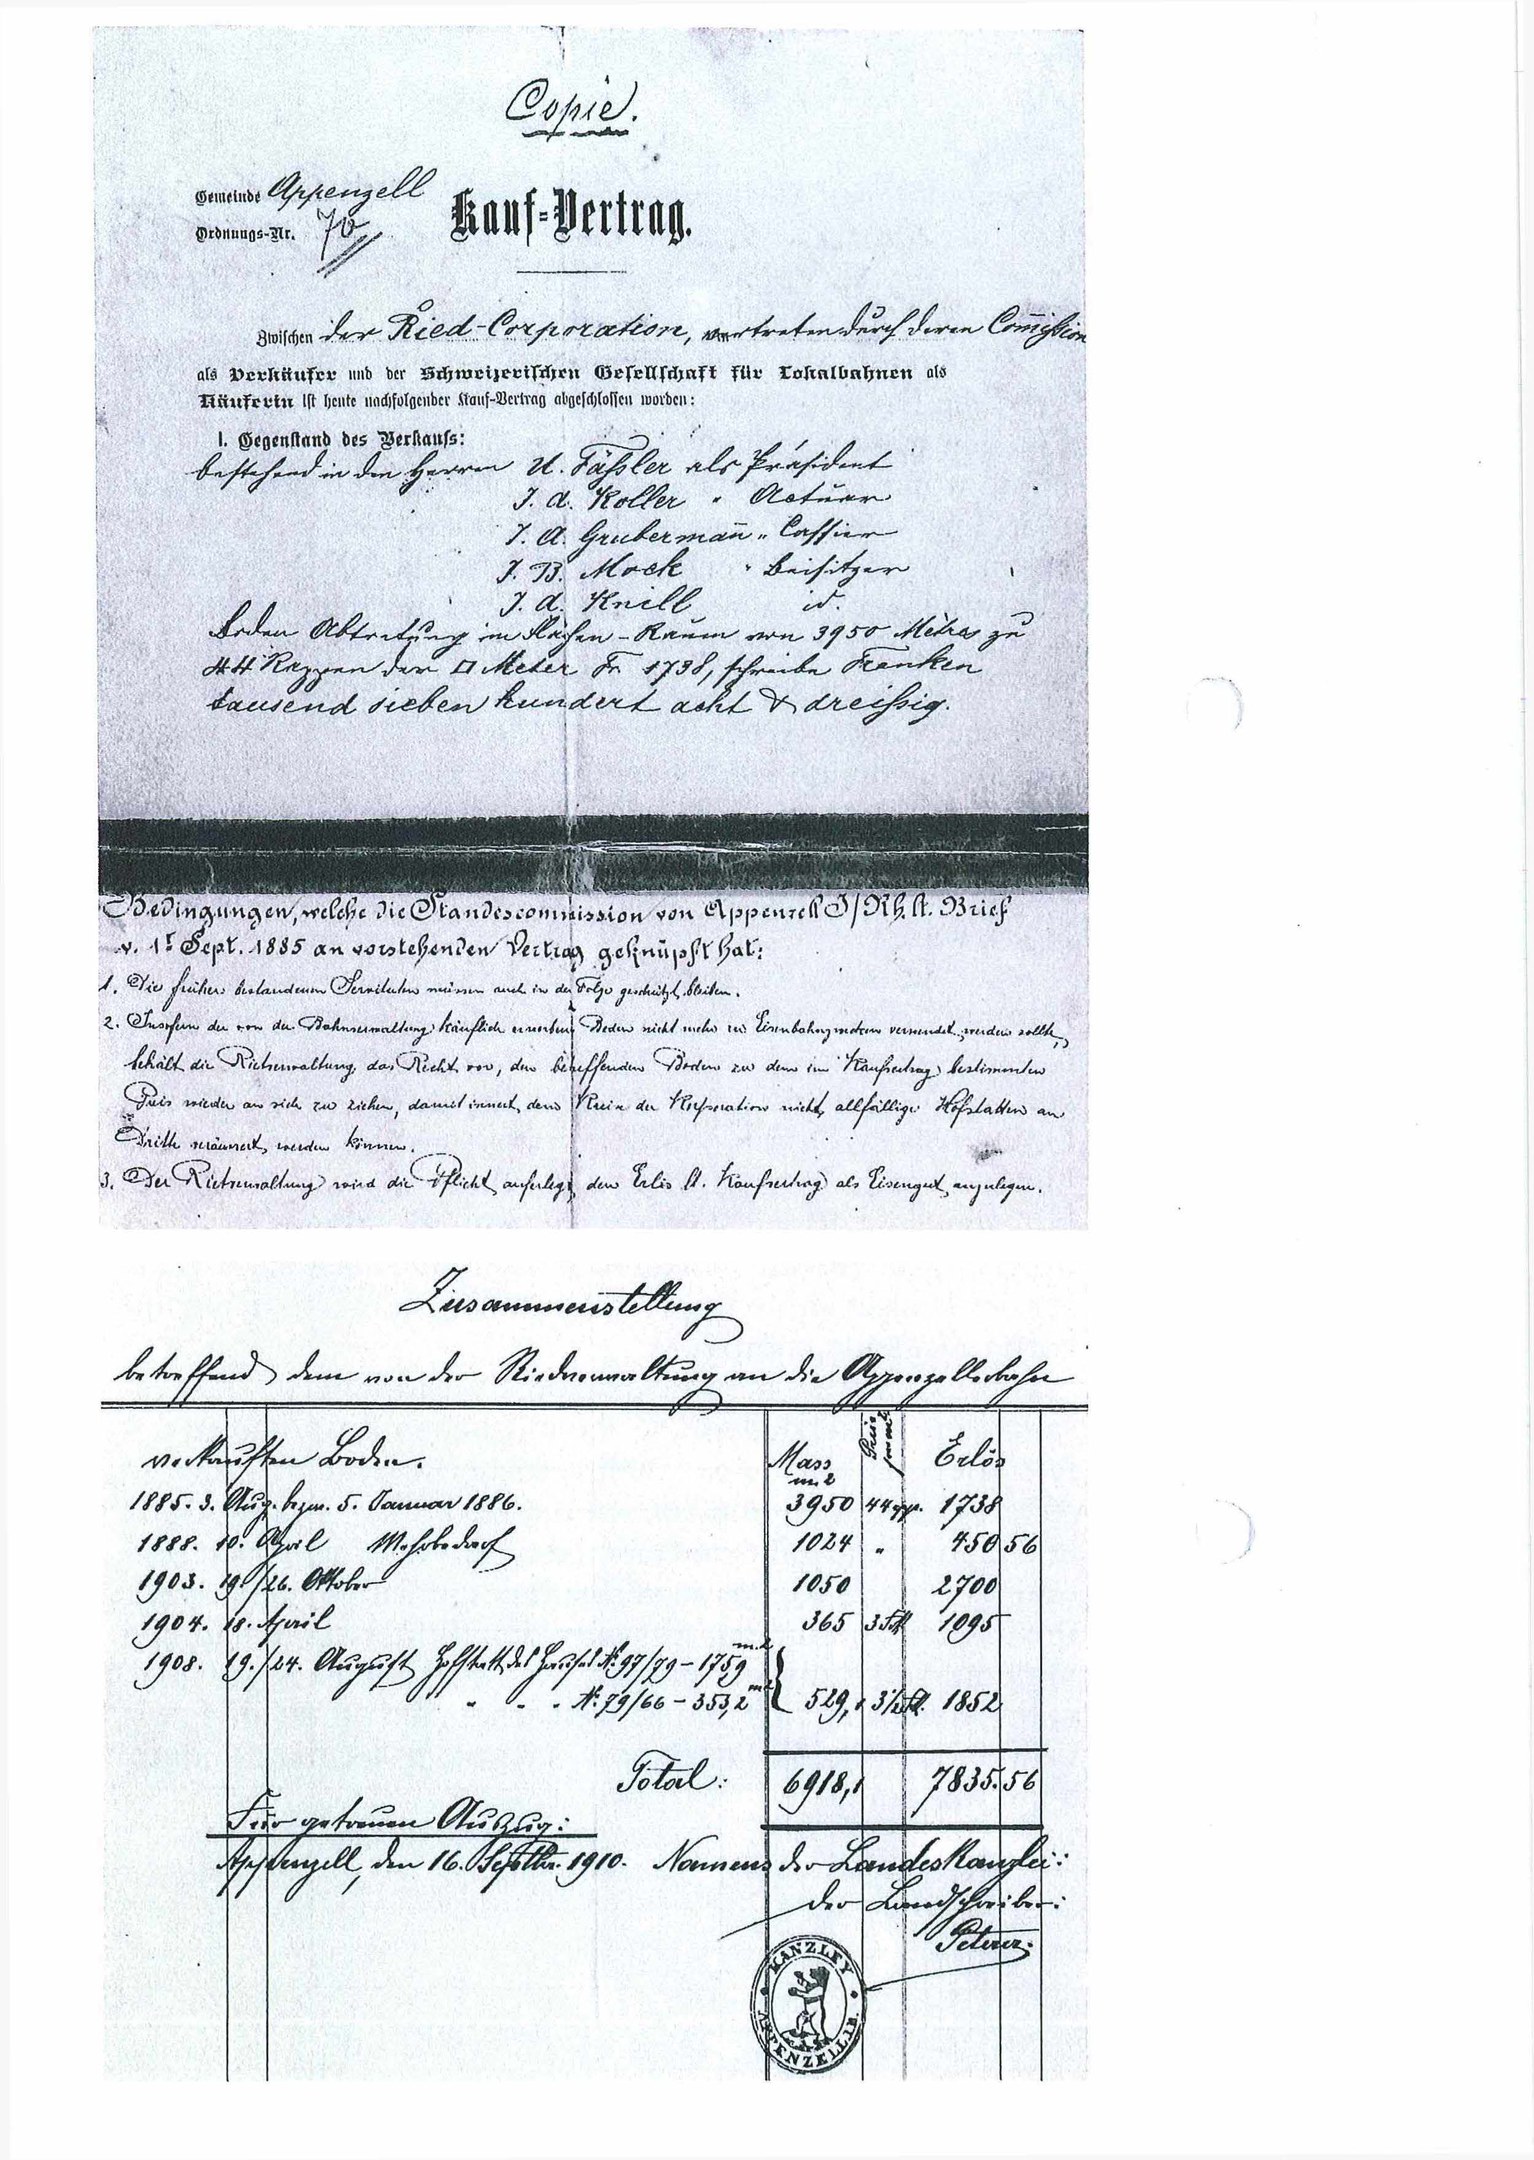 Copie.
Gemeinde Appenzell
Kauf-Vertrag.
Ordnungs-Nr. 70
Zwischen der Ried-Corporation, vertreten durch deren Com̅ission
als Verkäufer und der Schweizerischen Gesellschaft für Lokalbahnen als
Käuferin ist heute nachfolgender Kauf-Vertrag abgeschlossen worden:
1. Gegenstand des Verkaufs:
bestehend in den Herren U. Fässler als Präsident
J. A. Koller " Actuar
J. A. Gruberman̅ " Cassier
J. B. Mock " Beisitzer
J. A. Knill id.
Boden Abtretung im Flächen-Raum von 3950 Mètres zu
44 Rappen der □ Meter Fr 1738, schreibe Franken
tausend sieben hundert acht & dreissig.
Bedingungen, welche die Standescommission von Appenzell I/Rh. lt. Brief
v. 1t Sept. 1885 an vorstehenden Vertrag geknüpft hat:
1. Die früher bestandenen Servituten müssen auch in der Folge geschützt bleiben.
2. Insofern der von der Bahnverwaltung käuflich erworbene Boden nicht mehr zu Eisenbahnzwecken verwendet werden sollte,
behält die Rietverwaltung das Recht vor, den betreffenden Boden zu dem im Kaufvertrag bestimmten
Preis wieder an sich zu ziehen, damit innert dem Kreise der Korporation nicht allfällige Hofstatten an
Dritte veräussert werden können.
3. Der Rietverwaltung wird die Pflicht auferlegt, den Erlös lt. Kaufvertrag als Eisengut anzulegen.
Zusammenstellung
betreffend dem von der Riedverwaltung an die Appenzellerbahn
verkauften Boden. Mass m2 Preis per m2 Erlös
1885. 3. Aug. bezw. 5. Januar 1886. 3950 44 rp. 1738
1888. 10. April Mehrbedarf 1024 " 450 56
1903. 19./26. Oktober 1050 2700
1904. 18. April 365 3 Fr. 1095
1908. 19./24. August Hofstatt des Hauses No. 97/79 – 175,9 m2
" " " No. 79/66 – 353,2 m2 529,1 3½ Fr. 1852
Total: 6918,1 7835.56
Für getreuen Auszug:
Appenzell, den 16. Septbr. 1910. Namens der Landeskanzlei:
der Landschreiber:
Peterer.
KANZLEY
APPENZELL I.R.